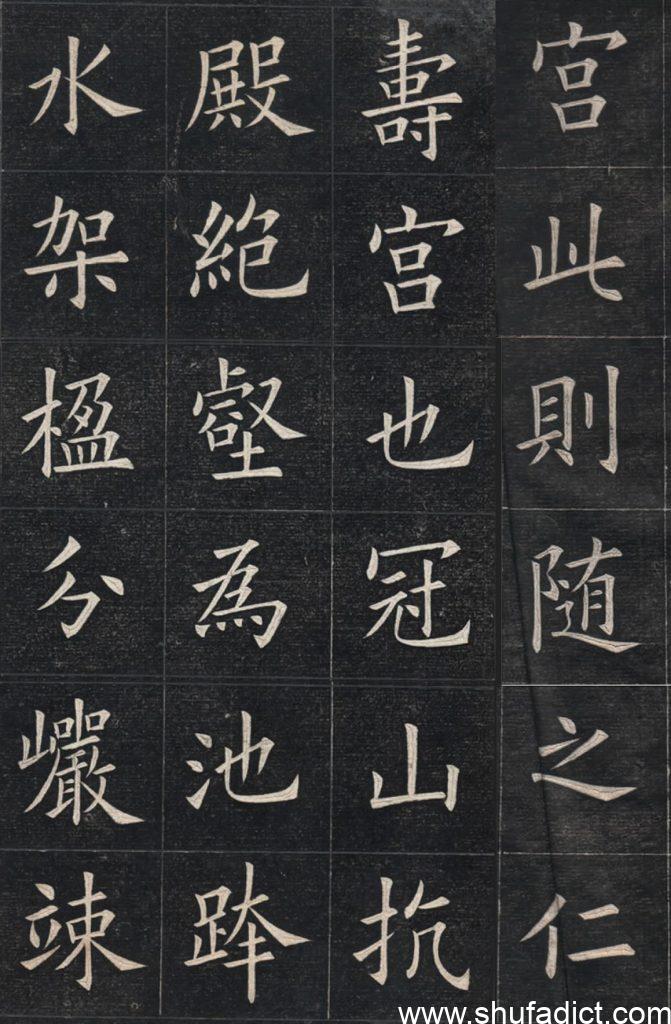 宫此則随之仁
壽宫也冠山抗
殿絶壑為池跨
水架楹分巖竦
www.shufadict.com